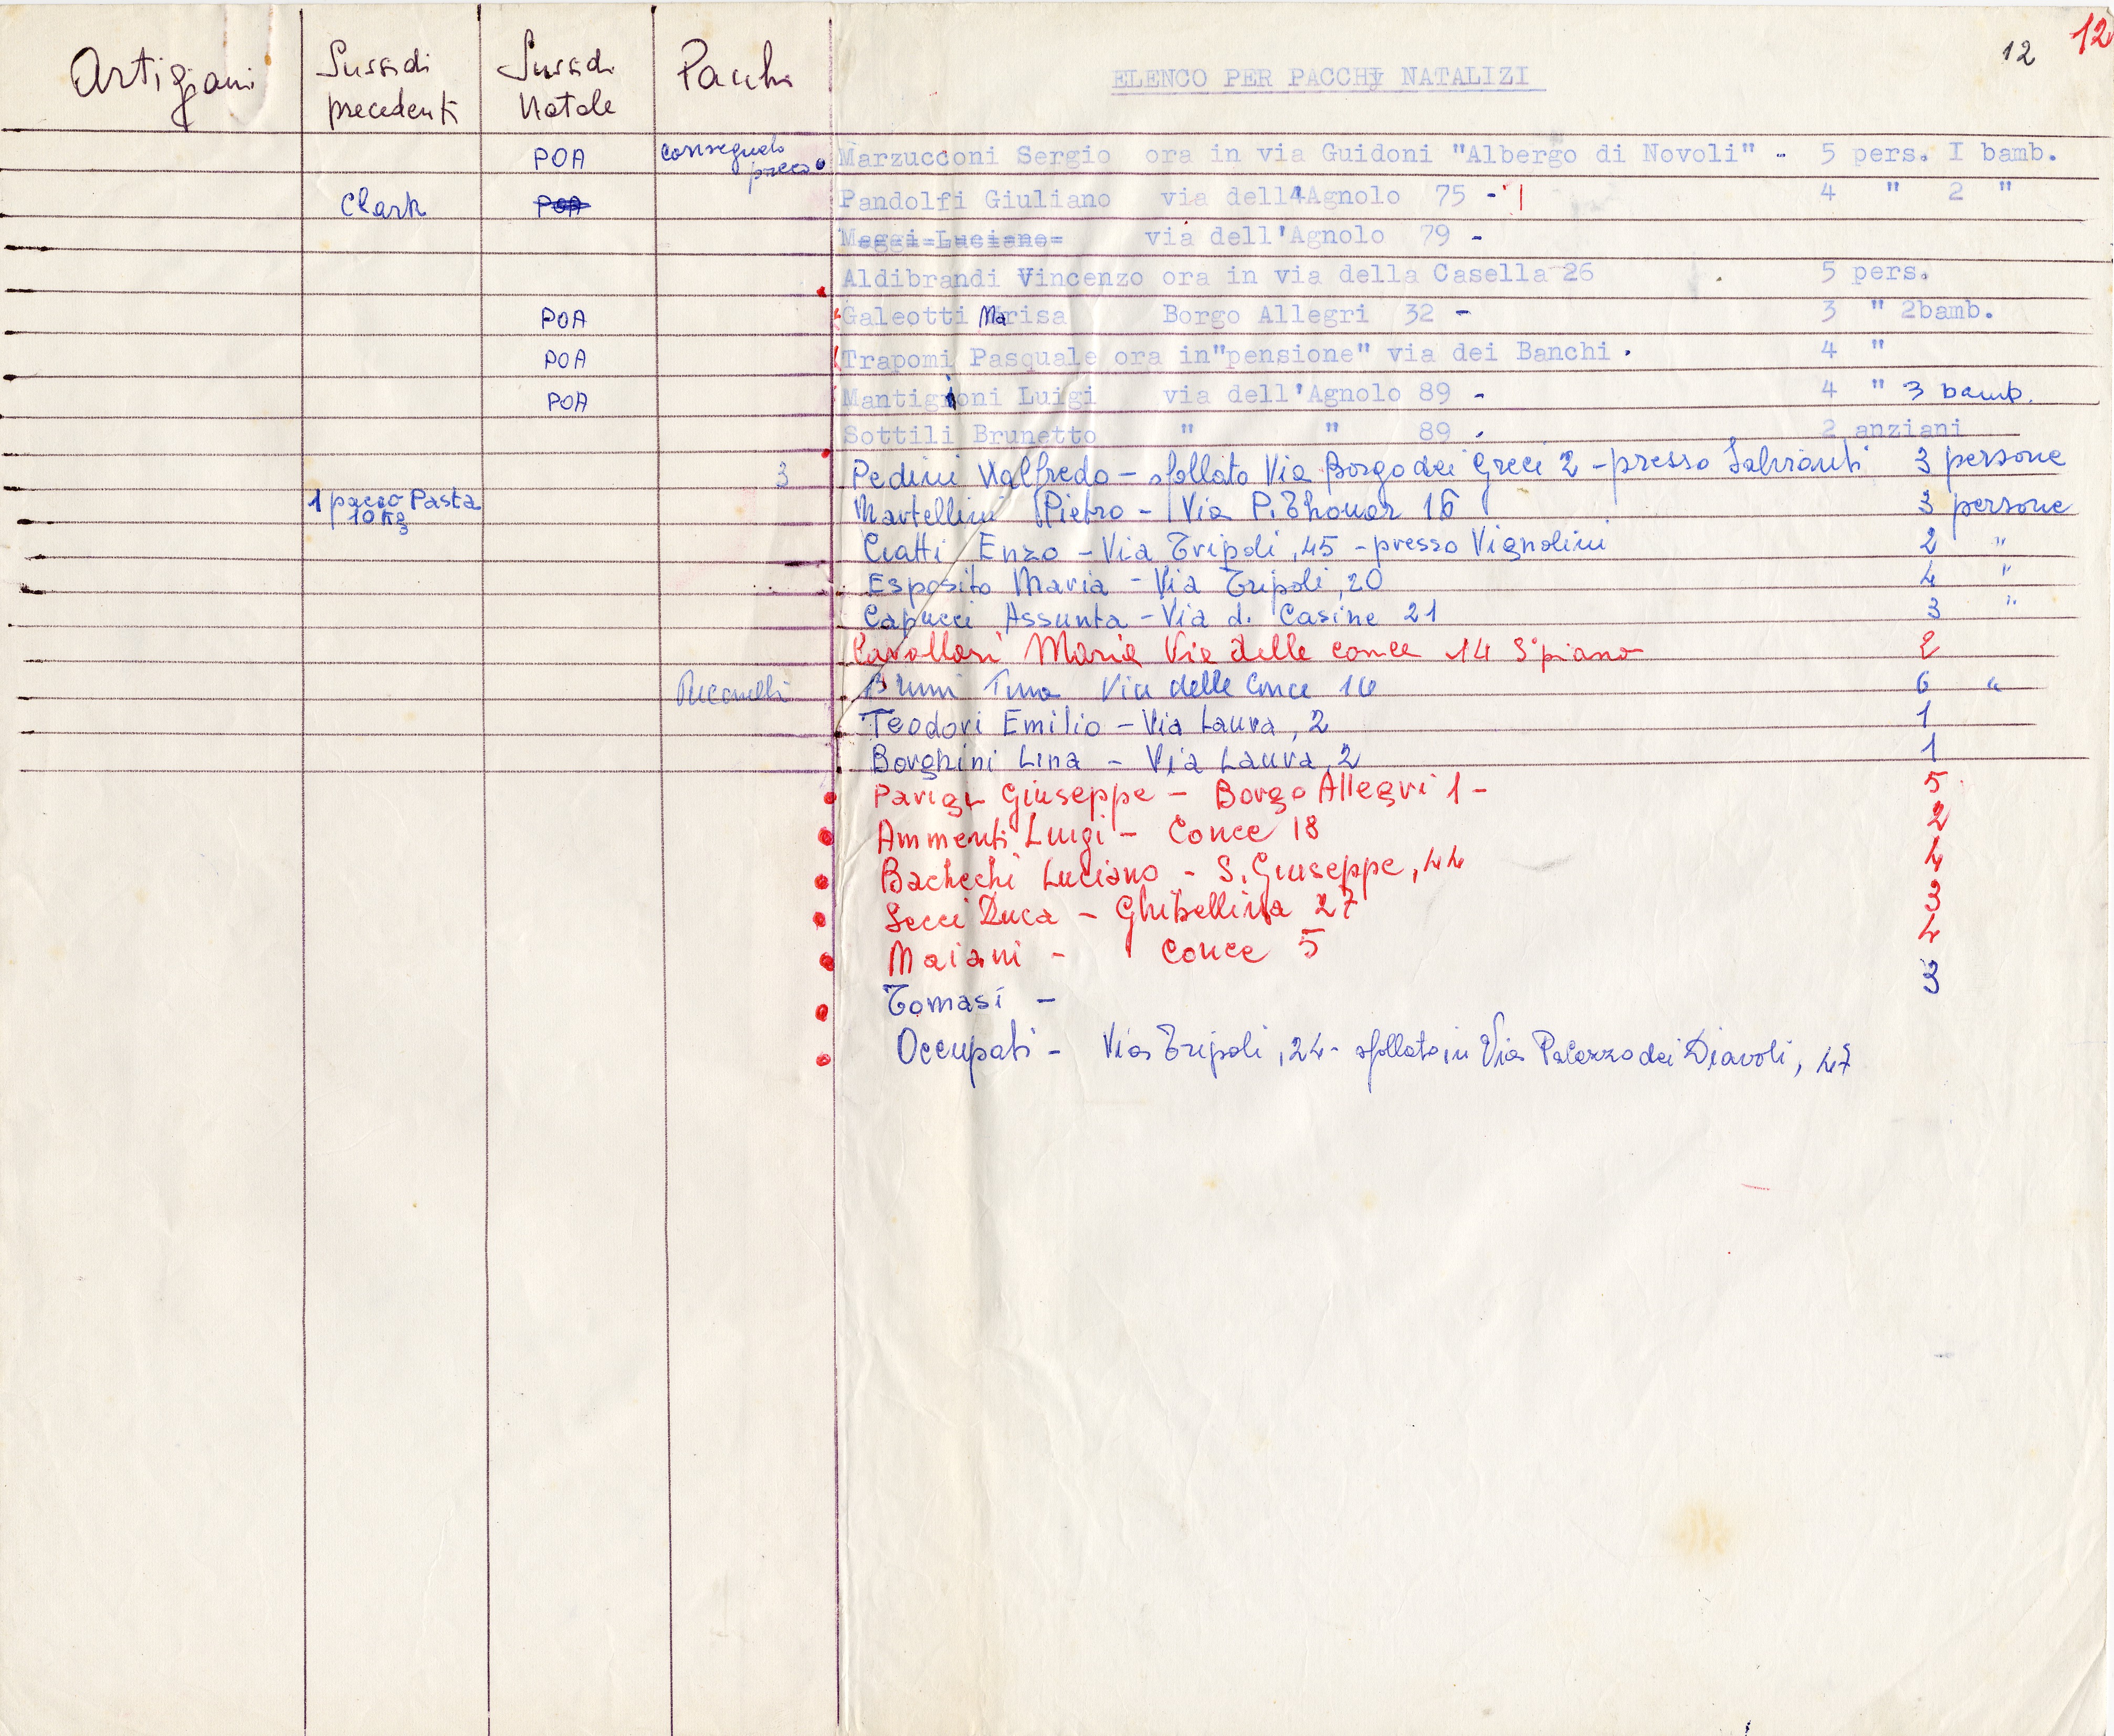 12 12
Artigiani Sussidi precedenti Sussidi Natale Pacchi ELENCO PER PACCHI NATALIZI
POA consegnato pacco Marzucconi Sergio ora in via Guidoni "Albergo di Novoli" - 5 pers. I bamb.
Clark POA Pandolfi Giuliano via dell'Agnolo 75 - 4 " 2 "
Maggi Luciano via dell'Agnolo 79 -
Aldibrandi Vincenzo ora in via della Casella 26 5 pers.
POA Galeotti Marisa Borgo Allegri 32 - 3 " 2bamb.
POA Trapomi Pasquale ora in"pensione" via dei Banchi . 4 "
POA Mantigioni Luigi via dell'Agnolo 89 - 4 " 3 bamb.
Sottili Brunetto " " 89 . 2 anziani
3 Pedini Valfredo - sfollato Via Borgo dei Greci 2 - presso 3 persone
1 pacco Pasta 10 Kg Martellini Pietro - Via P. Thouar 16 3 persone
Ciatti Enzo - Via Tripoli, 45 - presso Vignolini 2 "
Esposito Maria - Via Tripoli, 20 4 "
Capucci Assunta - Via d. Casine 21 3 "
Cavallari Maria Via delle conce 14 piano 2
Puccinelli Bruni Via delle Conce 16 6 "
Teodori Emilio - Via Laura, 2 1
Borghini Lina - Via Laura, 2 1
Parigi Giuseppe - Borgo Allegri 1 - 5
Ammenti Luigi - Conce 18 2
Bachechi Luciano - S. Giuseppe, 44 4
Secci Duca - Ghibellina 27 3
Maiani - Conce 5 4
Tomasi - 3
Occupati - Via Tripoli, 24 - sfollato in Via Palazzo dei Diavoli, 47